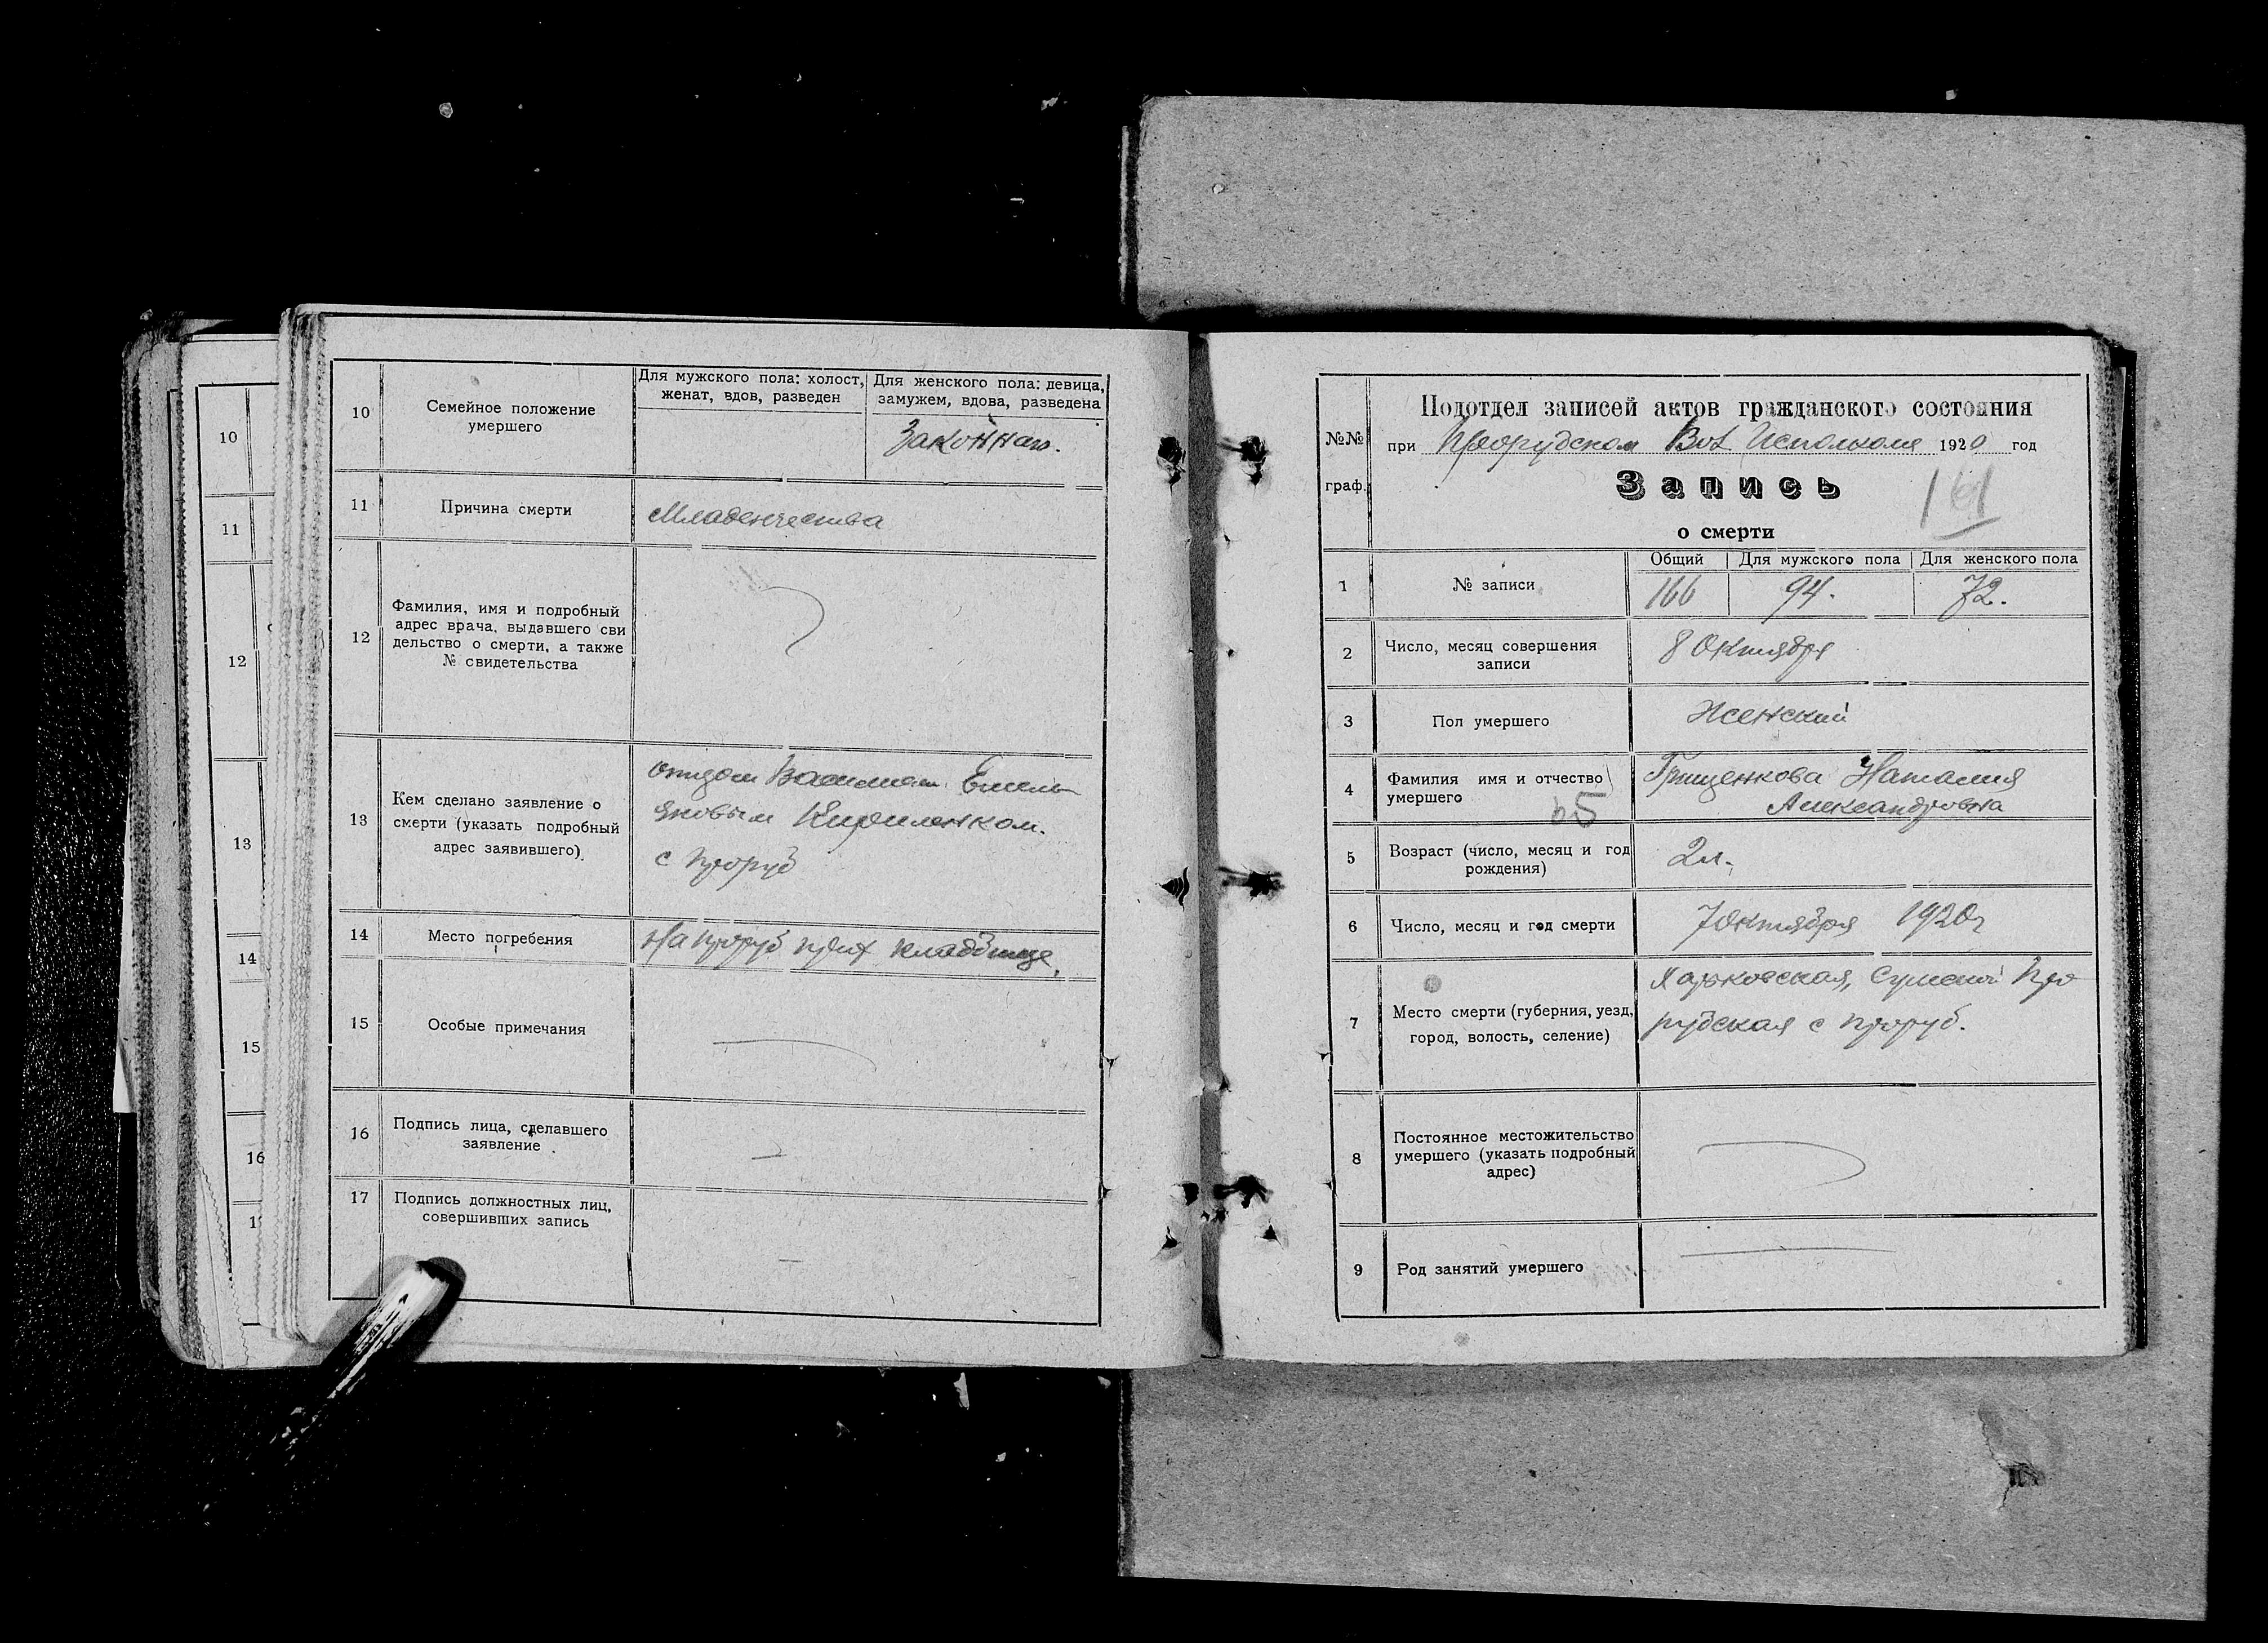 10
11
12
13
14
15
16
10
Семейное положение
умершего
Для мужского пола: холост,
женат, вдов, разведен
Для женского пола: девица,
замужем, вдова, разведена
Законная.
11
Причина смерти
Младенчества
12
Фамилия, имя и подробный
адрес врача, выдавшего сви
дельство о смерти, а также
№ свидетельства
13
Кем сделано заявление о
смерти (указать подробный
адрес заявившего)
отцом Василием Емель
яновым Кириленком.
с Проруб
14
Место погребения
На Проруб кладбище
15
Особые примечания
16
Подпись лица, сделавшего
заявление
17
Подпись должностных лиц,
совершивших запись
№№
граф.
Подотдел записей актов гражданского состояния
при Прорубском Вол Исполкоме 1920 год
Запись
161
о смерти
1
№ записи
Общий
Для мужского пола
Для женского пола
166
94.
72.
2
Число, месяц совершения
записи
8 Октября
3
Пол умершего
Женский
4
Фамилия имя и отчество
умершего
65
Грищенкова Наталия
Александровна
5
Возраст (число, месяц и год
рождения)
2л.
6
Число, месяц и год смерти
7 Октября 1920г
7
Место смерти (губерния, уезд,
город, волость, селение)
Харьковская, Сумской Про
рубская с Проруб.
8
Постоянное местожительство
умершего (указать подробный
адрес)
9
Род занятий умершего